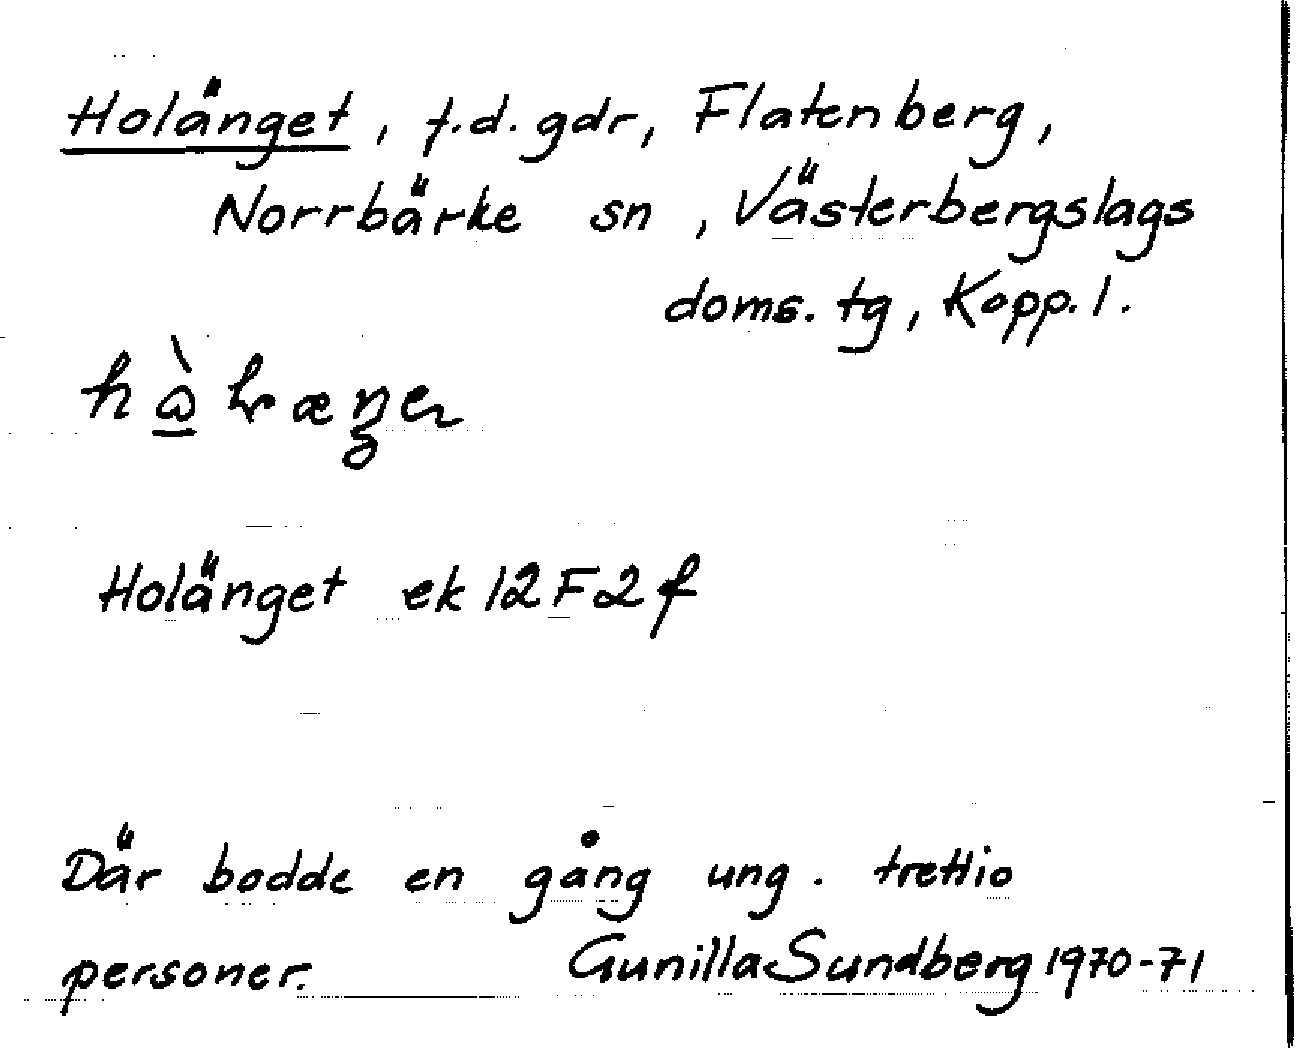 Holänget, f.d. gdr, Flatenberg,
Norrbärke sn, Västerbergslags
doms. tg, Kopp. l.
Holänget ek 12F2f
Där bodde en gång ung. trettio
personer. Gunilla Sundberg 1970-71